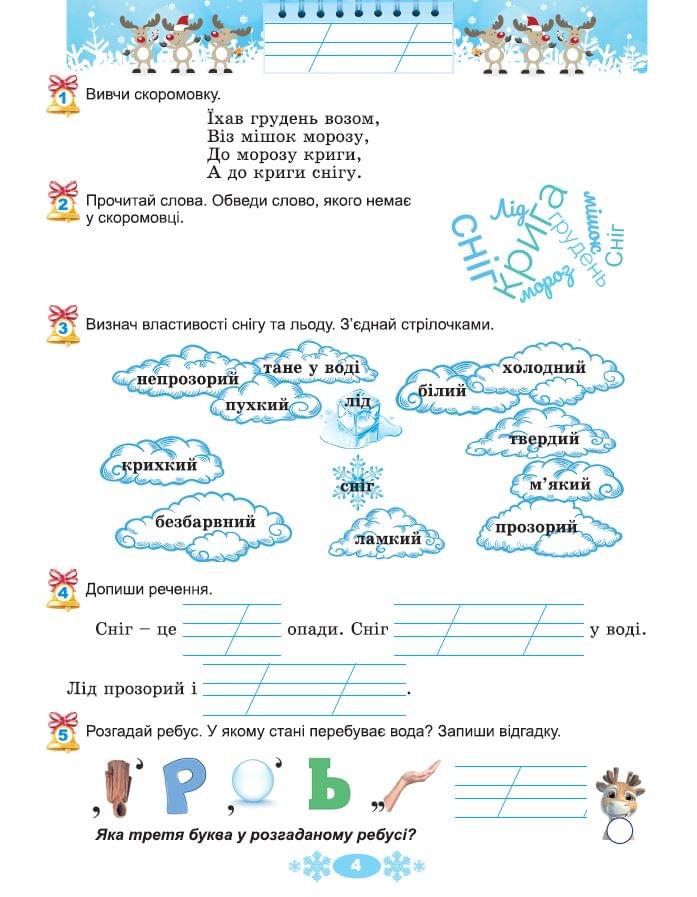 1 Вивчи скоромовку.
Їхав грудень возом,
Віз мішок морозу,
До морозу криги,
А до криги снігу.
2 Прочитай слова. Обведи слово, якого немає
у скоромовці.
сніг
Лід
крига
мороз
грудень
мішок
Сніг
3 Визнач властивості снігу та льоду. З’єднай стрілочками.
непрозорий
тане у воді
пухкий
лід
білий
холодний
твердий
крихкий
сніг
м’який
безбарвний
ламкий
прозорий
4 Допиши речення.
Сніг – це опади. Сніг у воді.
Лід прозорий і .
5 Розгадай ребус. У якому стані перебуває вода? Запиши відгадку.
, ’ Р , ’ Ь ,, ’
Яка третя буква у розгаданому ребусі?
4